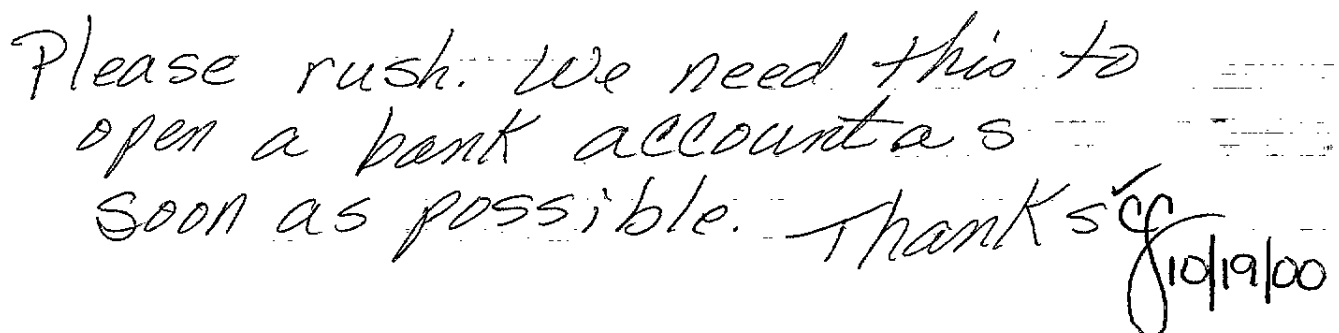 Please rush. We need this to
open a bank account as
soon as possible. Thanks
10/19/00